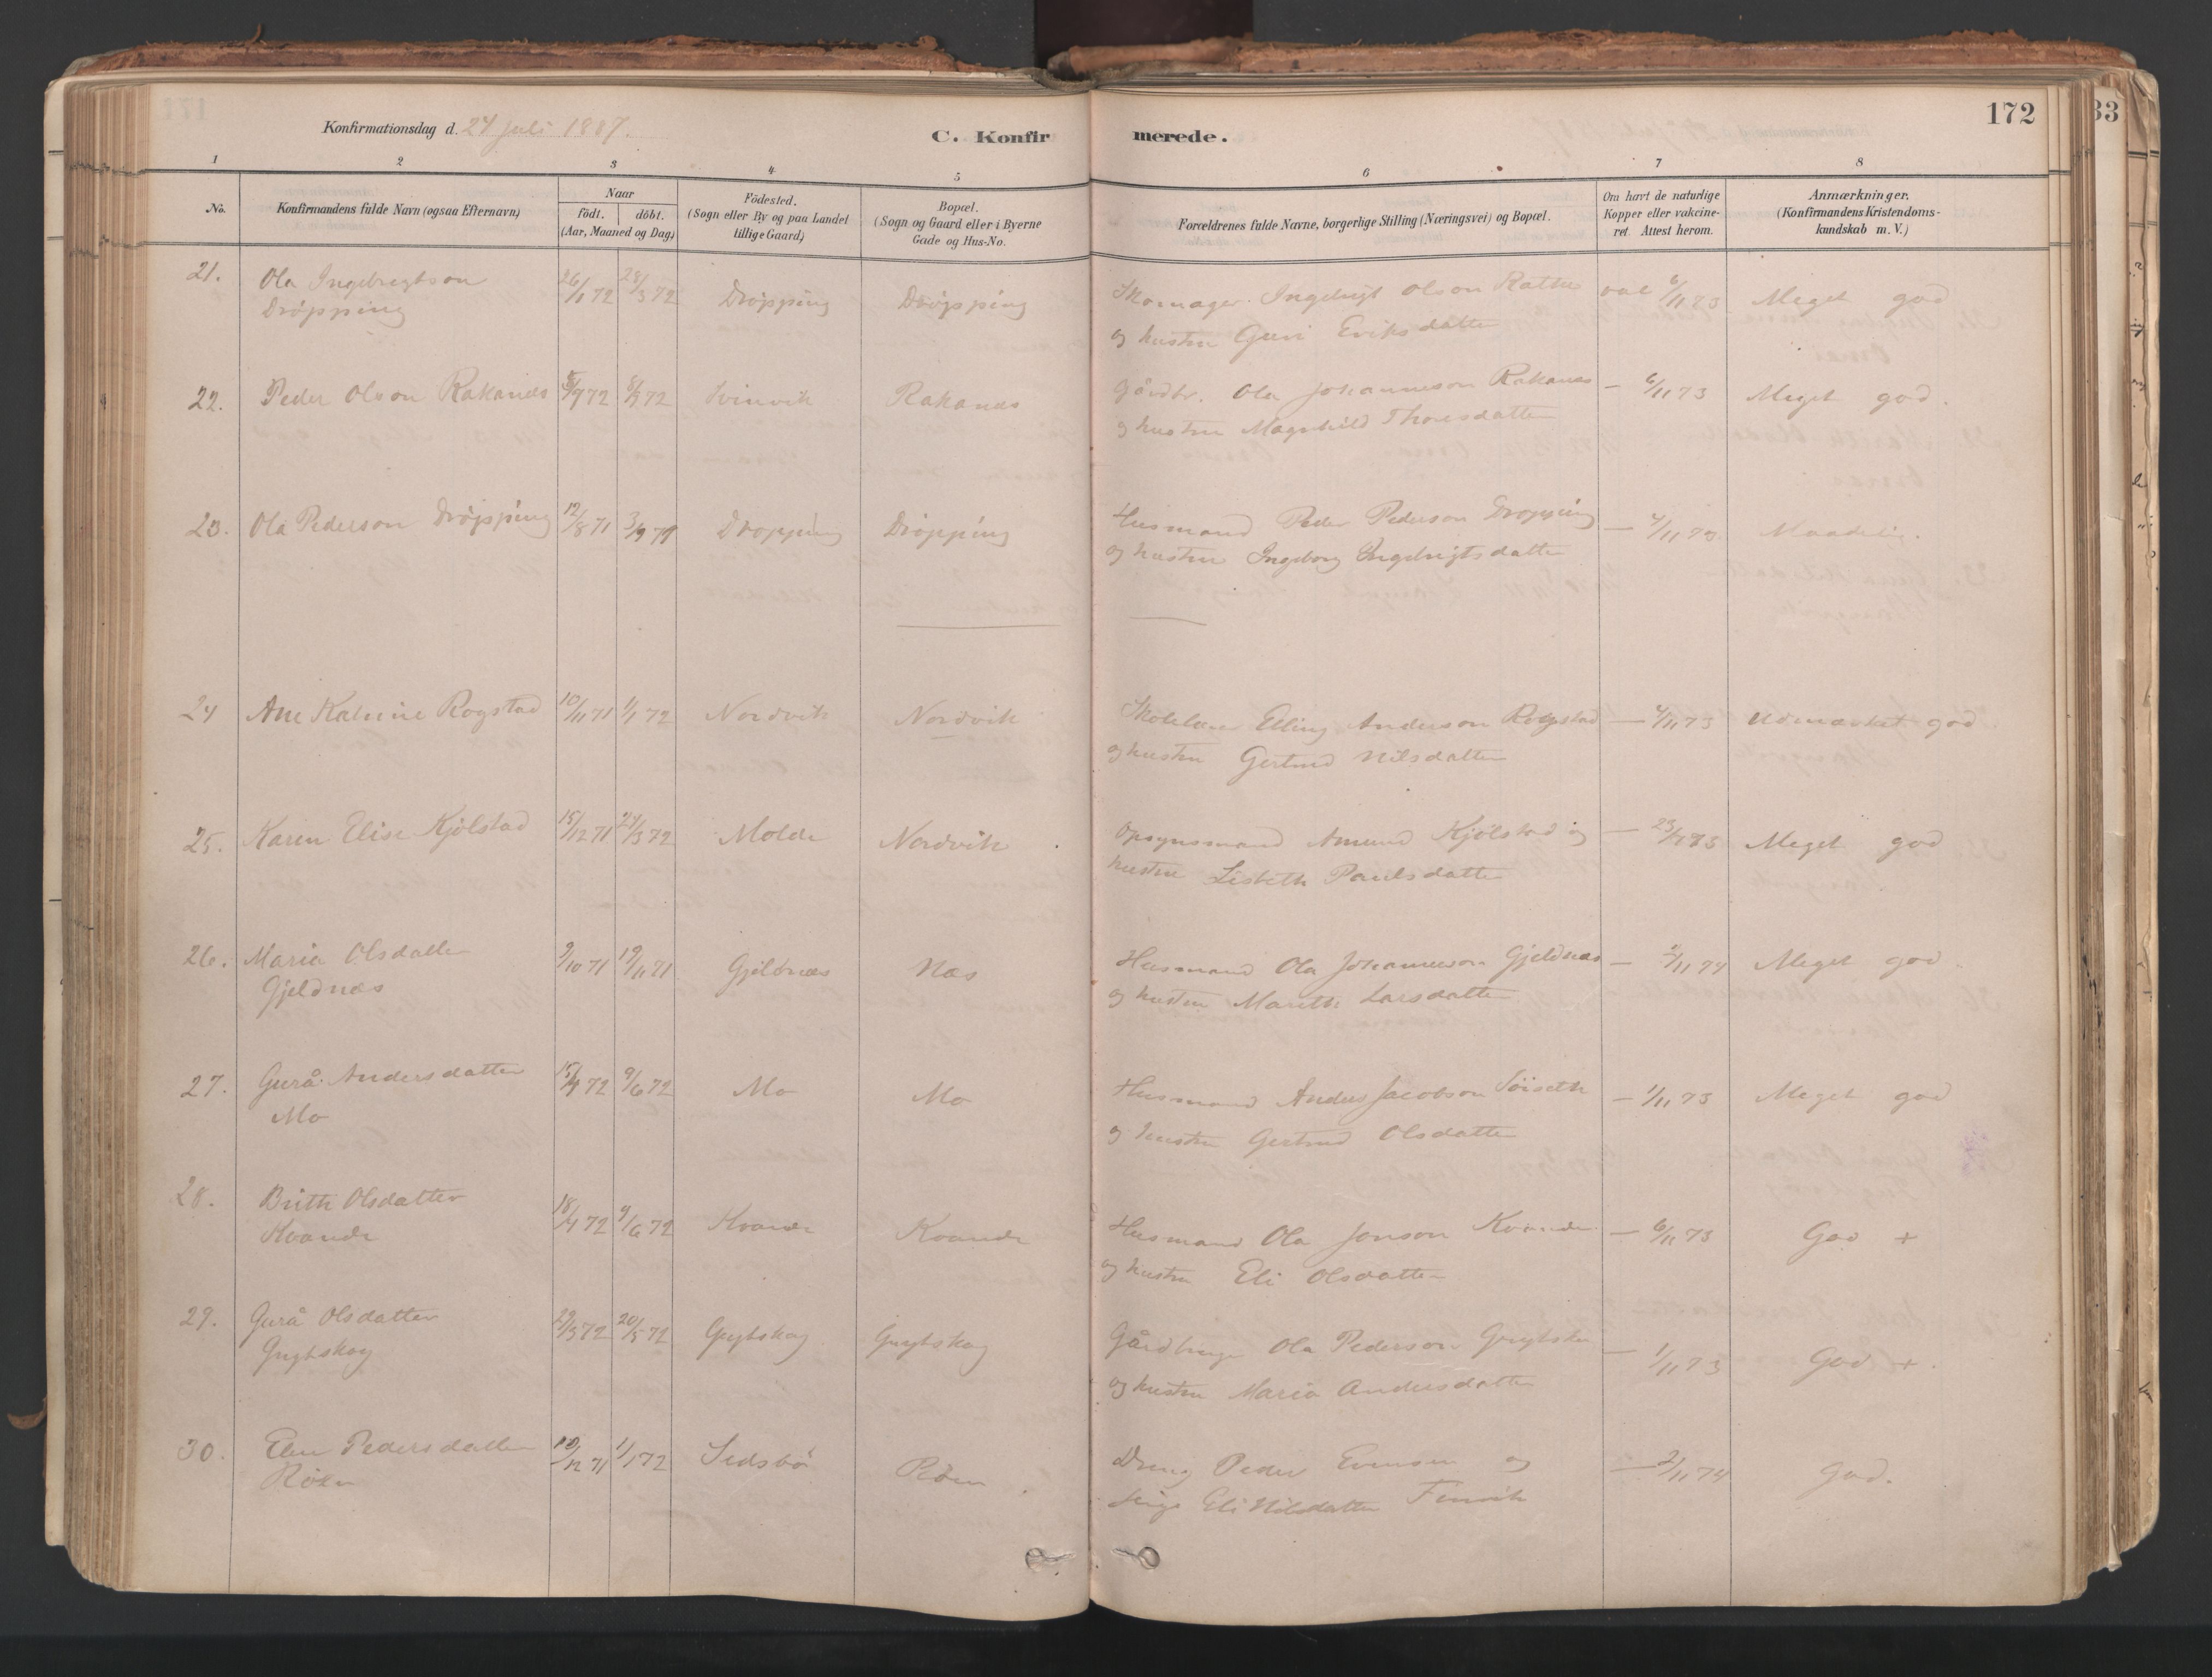 172
33
Konfirmationsdag d. 24 juli 1887.
C. Konfirmerede.
1 2 3 4 5 6 7 8
No.
Konfirmandens fulde Navn (ogsaa Efternavn)
Naar
födt. döbt.
(Aar, Maaned og Dag.)
Födested.
(Sogn eller By og paa Landet
tillige Gaard)
Bopæl.
(Sogn og Gaard eller i Byerne
Gade og Hus-No.
Forældrenes fulde Navne, borgerlige Stilling (Næringsvei) og Bopæl.
Om havt de naturlige
Kopper eller vakcine-
ret. Attest herom.
Anmærkninger,
(Konfirmandens Kristendoms-
kundskab m. V.)
21. Ola Ingebrigtson 26/1 72 28/3 72 Dröpping Dröpping Ingebrigt Olson 6/11 73 Meget god
Dröpping og hustru Guri Eriksdatter
22. Peder Olson Rakanes 5/7 72 8/9 72 Rakanæs Gårdbr. Ola Johanneson Rakanæs — 6/11 73 Meget god.
og hustru Magnhild Thoresdatter
23. Ola Pederson Dröpping 12/8 71 3/9 71 Dröpping Dröpping Husmand Peder Pederson Dröpping — 4/11 73 Maadelig.
og hustru Ingeborg Ingebrigtsdatter
24 Ane Katrine Rogstad 10/11 71 1/1 72 Nordvik Nordvik Elling Anderson Rogstad — 4/11 73 Udmærket god
og hustru Gertrud Nilsdatter
25. Karen Elise Kjölstad 15/12 71 24/3 72 Molde Nordvik Opsynsmand Amund Kjölstad og — Meget god
hustru Lisbeth Paulsdatter
26. Maria Olsdatter 9/10 71 19/11 71 Gjeldnæs Næs Husmand Ola Johanneson Gjeldnæs — 2/11 74 Meget god.
Gjeldnæs og hustru Marith Larsdatter
27. Gurå Andersdatter 15/4 72 9/6 72 Mo Mo Husmand Anders Jacobson Söiseth — 1/11 73 Meget god
Mo og hustru Gertrud Olsdatter
28. Brith Olsdatter 18/4 72 9/6 72 Kvande Kvande Husmand Ola Jonson Kvande — 6/11 73 God +
Kvande og hustru Eli Olsdatter
29. Gurå Olsdatter 29/3 72 20/5 72 Grytskog Grytskog Gårdbruger Ola Pederson — 1/11 73 God +
Grytskog og hustru Maria Andersdatter
30. Elen Pedersdatter 10/12 71 1/1 72 Röen Dreng Peder Evensen og — 2/11 74 God.
Röen Pige Eli Nilsdatter